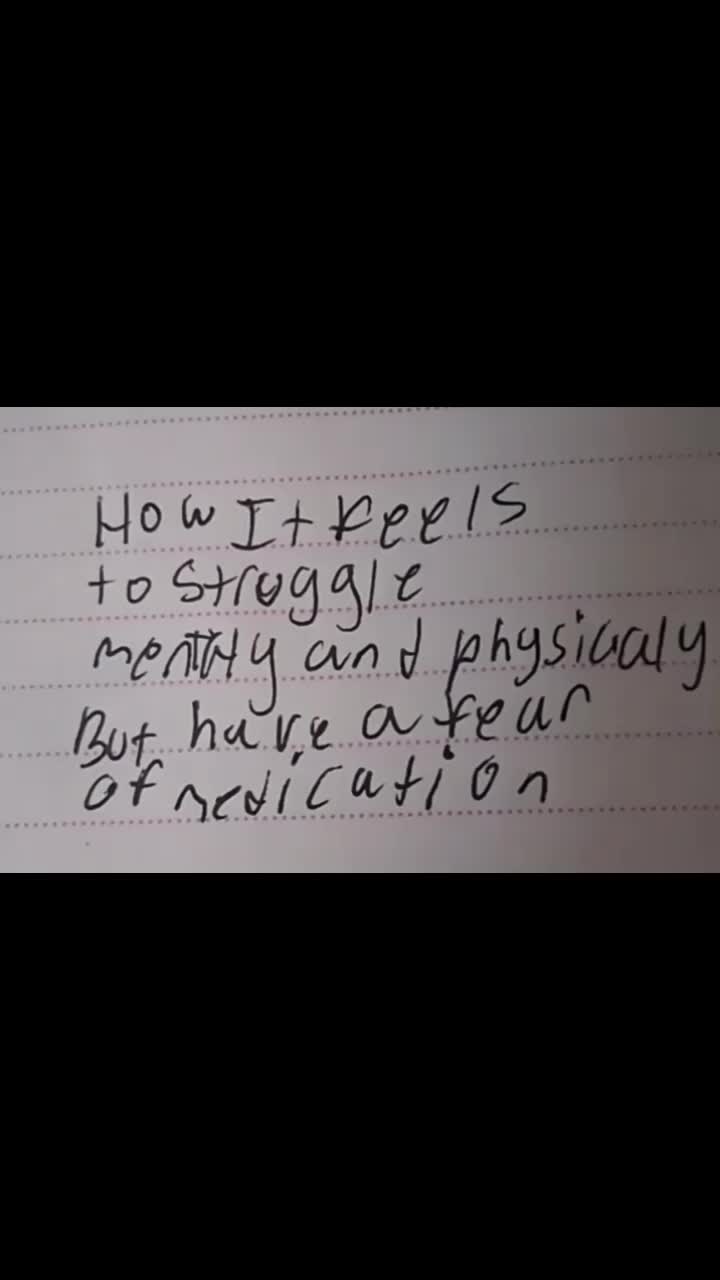 How It Feels
to struggle
mentaly and physicaly
But have a fear
of medication